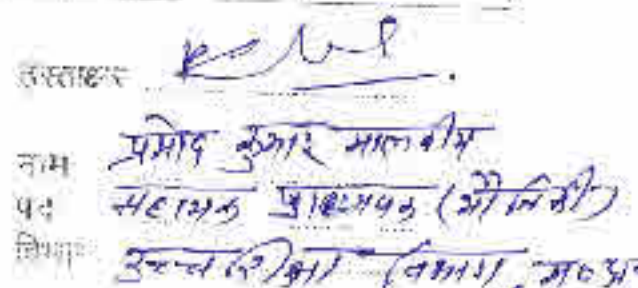 हस्ताक्षर
नाम प्रमोद कुमार मालवीय
पद सहायक प्राध्यापक (भौतिकी)
विभाग उच्च शिक्षा विभाग म०प्र०